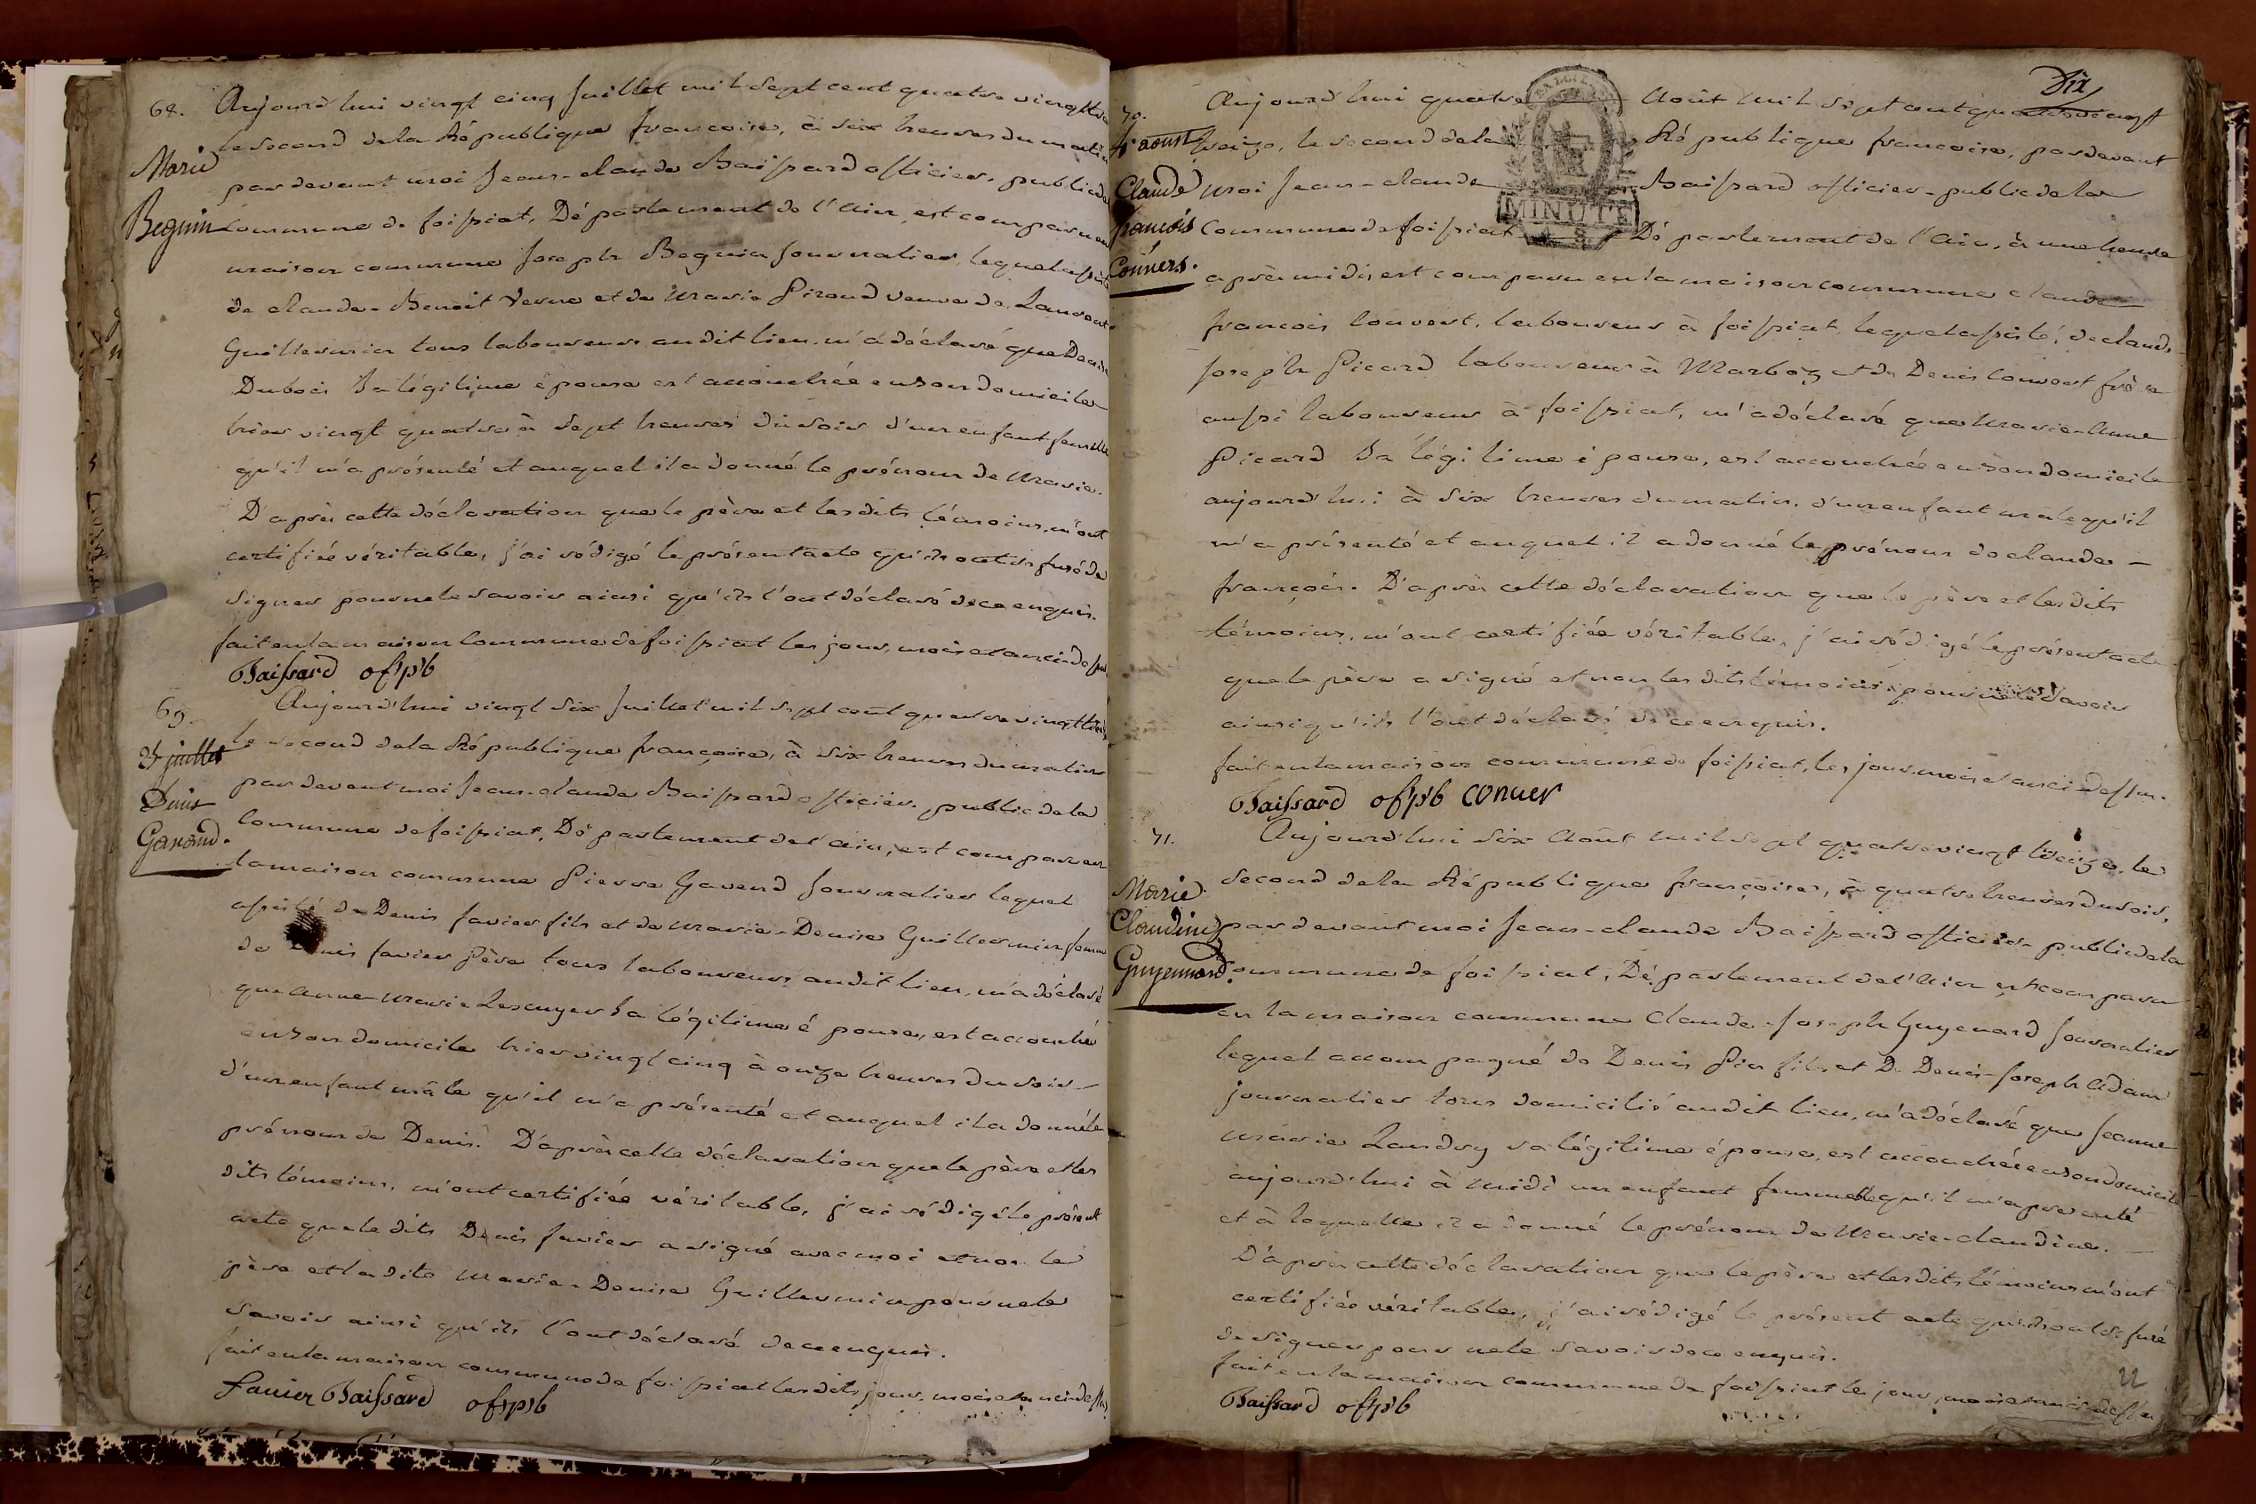 68.
Marie
Beguin
Aujourd'hui vingt cinq Juillet mil sept cent quatre vingt
le second de la République françoise, à six heures du matin
par devant moi Jean-claude Baissard officier public de
Commune de foissiat, Département de l'Ain, est comparu en
maison commune Joseph Beguin journalier, lequel assisté
de claude-Benoit Verne et de Marie Piroud veuve de Laurent
Guillermin tous laboureurs audit lieu, m'a déclaré que Denise
Dubois Sa légitime épouse est accouchée en son domicile
hier vingt quatre à sept heures du soir d'un enfant femelle
qu'il m'a présenté et auquel il a donné le prénom de Marie.
D'après cette déclaration que le père et lesdits témoins, m'ont
certifiée véritable, j'ai rédigé le présent acte qu'ils ont refusé de
signer pour ne le savoir ainsi qu'ils l'ont déclaré de ce enquis.
fait en la maison Commune de foissiat les jour, mois et an ci-dessus
Baissard of. pb
69.
25 juillet
Denis
Gavand.
Aujourd'hui vingt six Juillet mil sept cent quatre vingt treize
le second de la République françoise, à six heures du matin
par devant moi Jean-claude Baissard officier-public de la
Commune de foissiat, Département de l'ain, est comparu en
la maison commune Pierre Gavend journalier lequel
assisté de Denis favier fils et de Marie-Denise Guillermin femme
de Denis favier Père tous laboureurs audit lieu, m'a déclaré
que Anne-Marie Lescuyer Sa légitime épouse, est accouchée
en son domicile hier vingt cinq à onze heures du soir
d'un enfant mâle qu'il m'a présenté et auquel il a donné le
prénom de Denis. D'après cette déclaration que le père et les
dits témoins, m'ont certifiée véritable, j'ai rédigé le présent
acte que ledits Denis favier a signé avec moi et non le
père et ladite Marie-Denise Guillermin pour ne le
savoir ainsi qu'ils l'ont déclaré de ce enquis.
fait en la maison commune de foissiat lesdits jour, mois et an ci-dessus
favier Baissard of. pb
Dix
MINUTE
70.
4 aoust
Claude
francois
Convers.
Aujourd'hui quatre Août mil sept cent quatre vingt
treize, le second de la République francoise, par devant
moi Jean-claude Baissard officier-public de la
Commune de foissiat Département de l'Ain, à une heure
après midi, est comparu en la maison commune claude
francois Convert, laboureur à foissiat, lequel assisté, de claude
Joseph Picard laboureur à Marboz et de Denis Convert frère
aussi laboureur à foissiat, m'a déclaré que Marie-Anne
Picard Sa légitime épouse, est accouchée en son domicile
aujourd'hui à six heures du matin, d'un enfant mâle qu'il
m'a présenté et auquel il a donné le prénom de claude-
françois. D'après cette déclaration que le père et lesdits
témoins, m'ont certifiée véritable, j'ai rédigé le présent acte
que le père a signé et non lesdits témoins pour ne le savoir
ainsi qu'ils l'ont déclaré de ce enquis.
fait en la maison commune de foissiat, les jour, mois et an ci-dessus.
Baissard of. pb conver
71.
Marie
Claudine
Guyennard.
Aujourd'hui six Août mil sept quatre vingt treize, le
second de la République françoise, à quatre heures du soir,
par devant moi Jean-claude Baissard officier-public de la
commune de foissiat, Département de l'Ain est comparu
en la maison commune Claude-Joseph Guyenard journalier
lequel accompagné de Denis Pin fils et de Denis-Joseph Adam
journalier tous domicilié audit lieu, m'a déclaré que Jeanne
Marie Landry sa légitime épouse, est accouchée en son domicile
aujourd'hui à midi un enfant femmelle qu'il m'a présenté
et à laquelle il a donné le prénom de Marie-claudine.
D'après cette déclaration que le père et lesdits témoins m'ont
certifiée véritable, j'ai rédigé le présent acte qu'ils ont refusé
de signer pour ne le savoir de ce enquis.
fait en la maison commune de foissiat les jour, mois et an ci-dessus
Baissard of. pb
22